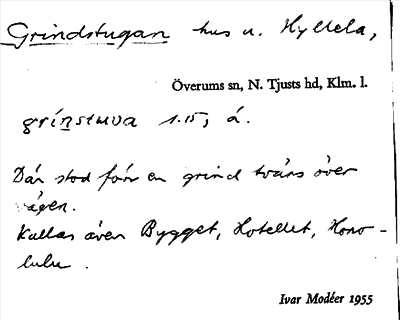 Grindstugan hus u. Hyllela,
Överums sn, N. Tjusts hd, Klm. l.
grínstuva 1.15, á.
Där stod förr en grind tvärs över
vägen.
Kallas även Bygget, Hotellet, Hono-
lulu.
Ivar Modéer 1955